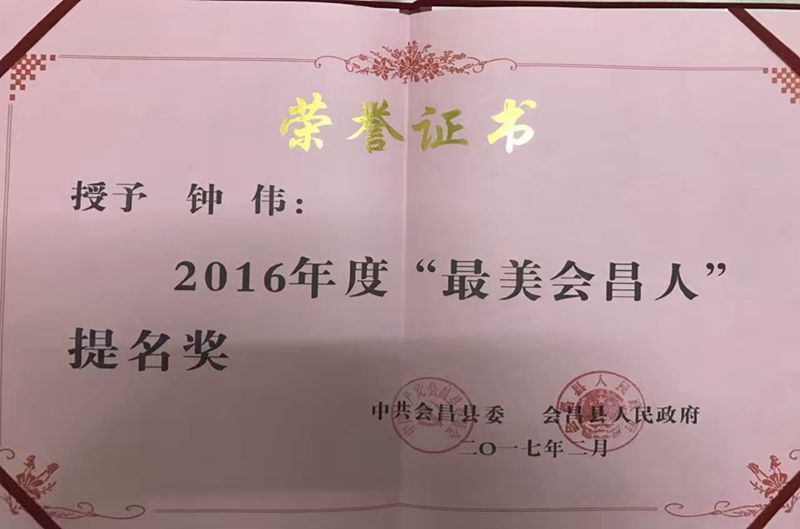 荣誉证书
授予 钟 伟：
2016年度“最美会昌人”
提名奖
中共会昌县委 会昌县人民政府
二〇一七年二月